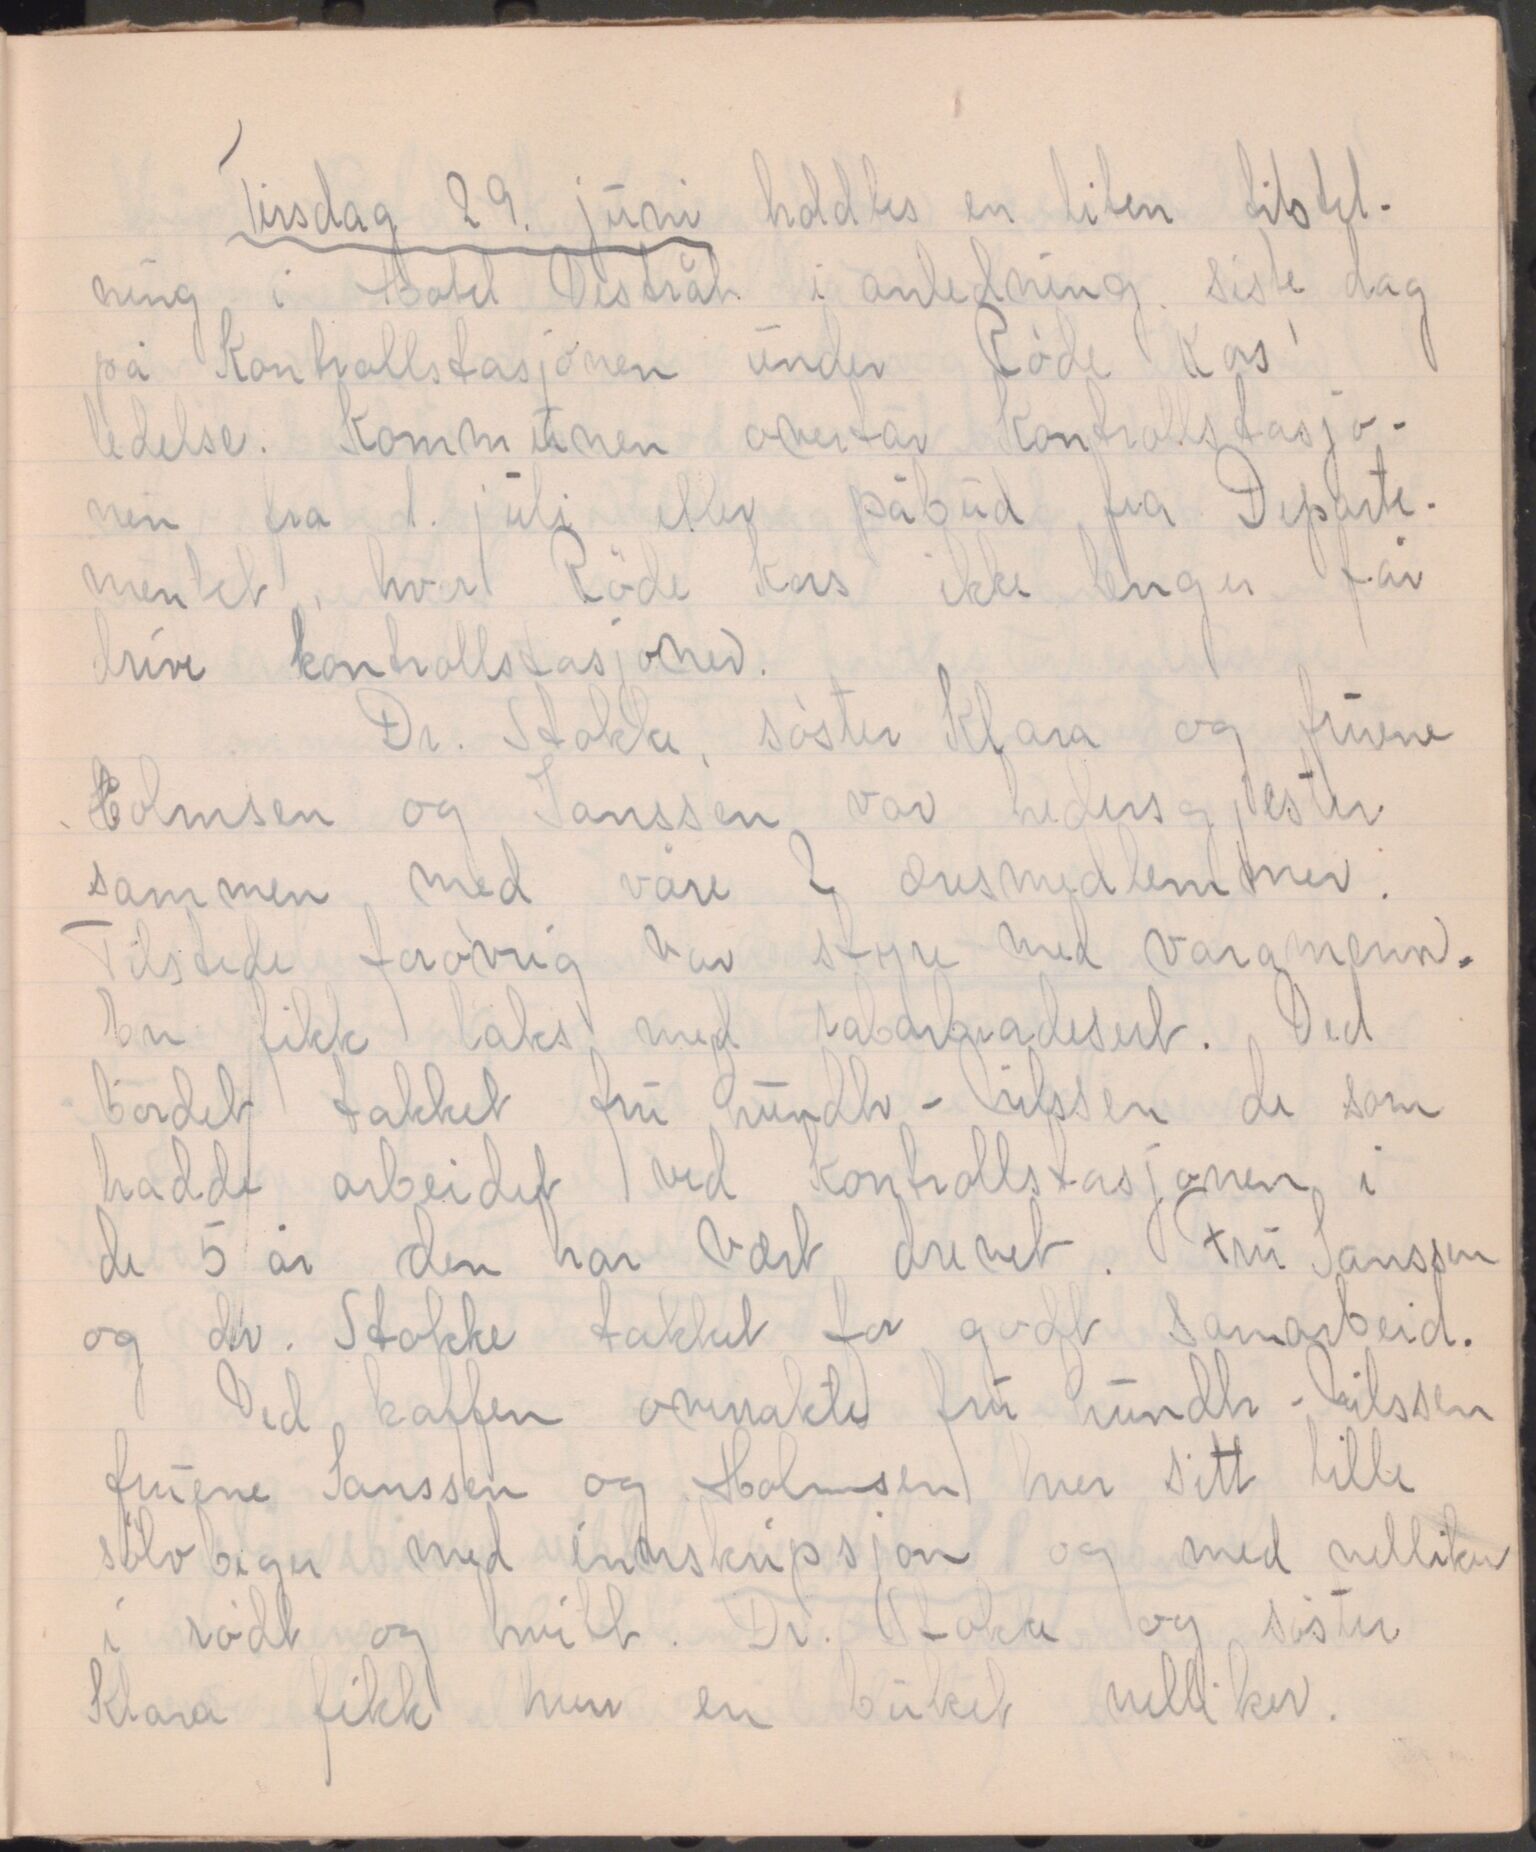 Tirsdag 29. juni holdtes en liten tilstel-
ning i Hotel Vestråt i anledning siste dag
på Kontrollstasjonen under Röde Kors'
ledelse. Kommunen overtar Kontrollstasjo-
nen fra 1. juli etter påbud fra Departe-
mentet, hvor Röde Kors ikke lenger får
drive kontrollstasjoner.
Dr. Stokke, söster Klara og fruene
Holmsen og Janssen var hedersgjester
sammen med våre 2 æresmedlemmer.
Tilstede forövrig var styre med varamenn.
En fikk laks med rabarbradesert. Ved
bordet takket fru Lundh-Nilssen de som
hadde arbeidet ved Kontrollstasjonen i
de 5 år den har vært drevet. Fru Janssen
og dr. Stokke takket for godt samarbeid.
Ved kaffen overrakte fru Lundh-Nilssen
fruene Janssen og Holmsen hver sitt lille
sölvbeger med innskripsjon og med nelliker
i rödt og hvitt. Dr. Stokke og söster
Klara fikk hver en buket nelliker.